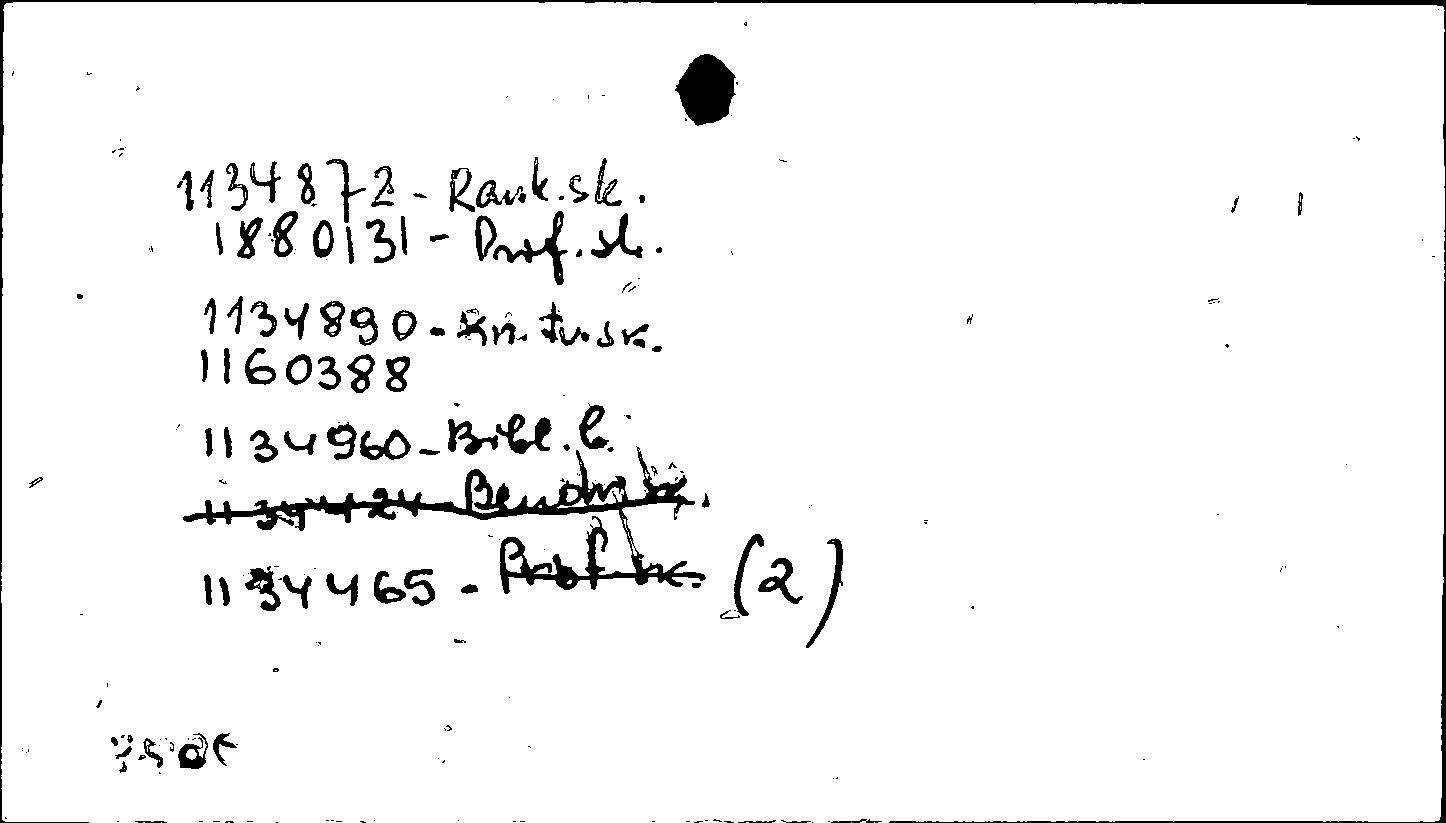 1134872 - Rank.sk.
1880131 - Prof.sk.
1134890 - Kn.tv.sk.
1160388
1134960 - Bibl.b.
1134424 - Bendr. sk.
1134465 - Prof sk. (2)